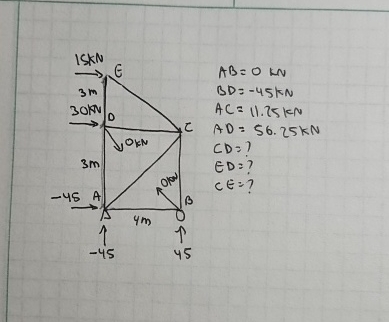 15kN
E
3m
30kN
D
C
0kN
3m
0kN
-45
A
B
4m
-45
45
AB=0 kN
BD=-45kN
AC=11.25kN
AD=56.25kN
CD=?
ED=?
CE=?